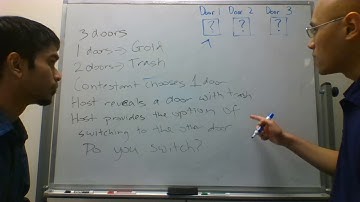 Door 1 Door 2 Door 3
? ? ?
3 doors
1 doors → Gold
2 doors → Trash
Contestant chooses 1 door
Host reveals a door with trash
Host provides the option of
switching to the other door
Do you switch?